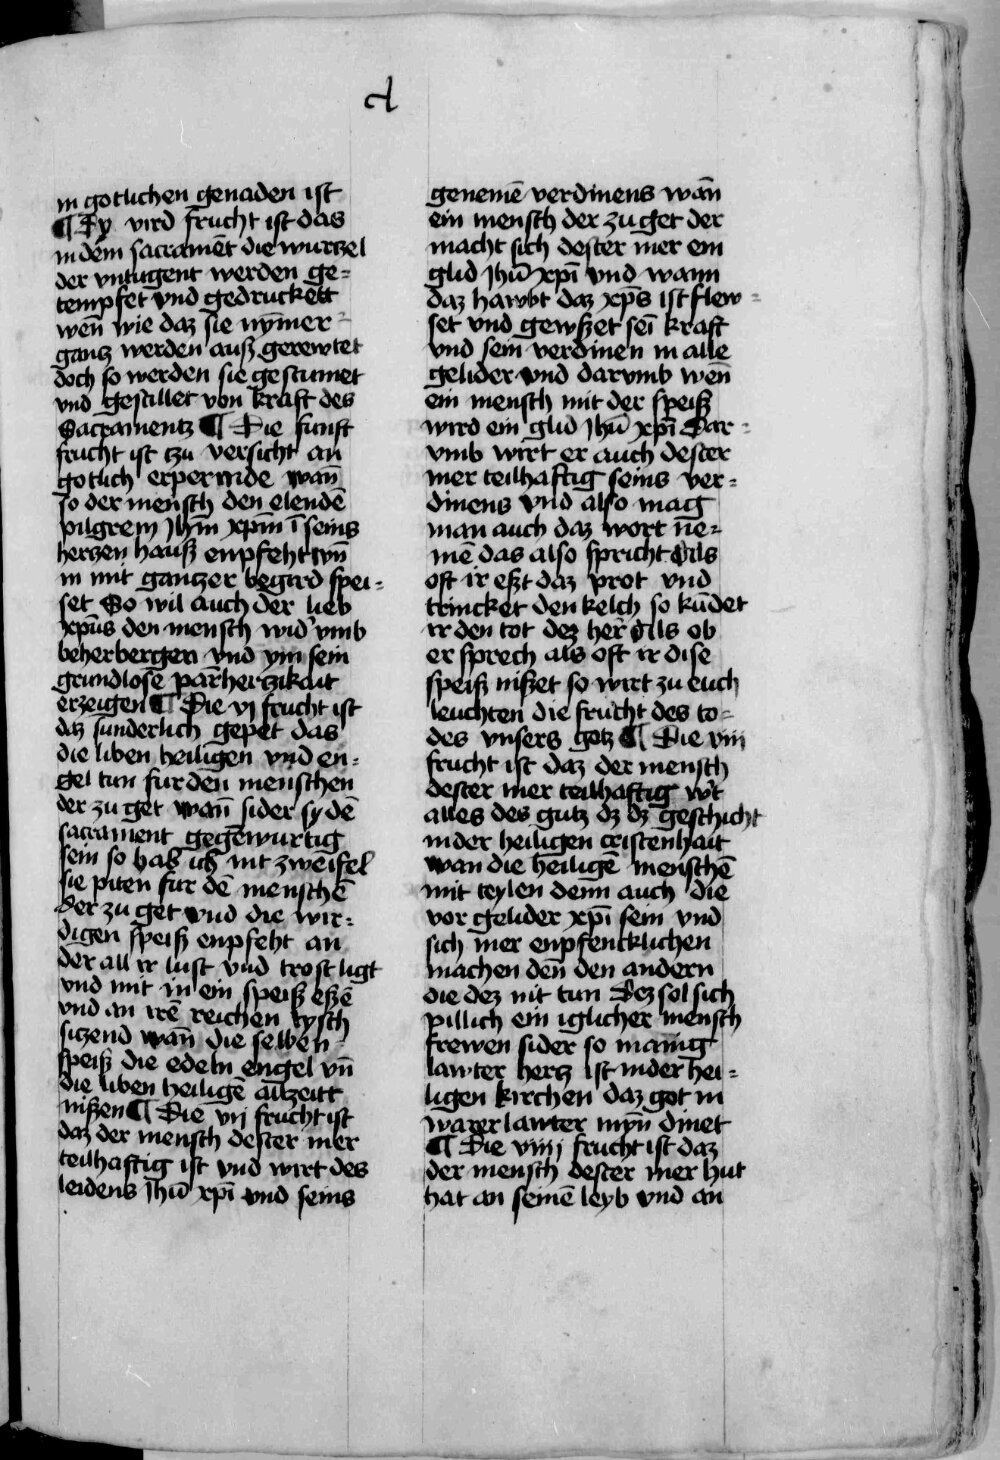 d
in gotlichen genaden ist
¶ Dy vird frucht ist das
in dem sacramēt die wurtzel
der vntugent werden ge=
tempfet vnd gedruckett
wen̄ wie daz sie nymer
gantz werden auß gerewtet
doch so werden sie gestumet
vnd gestillet von kraft des
Sacramentz ¶ Die funft
frucht ist tzu versicht an
gotlich erpermde wan̄
so der mensch den elendē
pilgrem Jhm̄ xpm̄ ī seins
hertzen hauß enpfeht vn̄
in mit gantzer begird spei=
set So wil auch der lieb
xpūs den mensch wid' vmb
beherbergen vnd ym sein
grundlosē parhertzikait
erzeigen ¶ Die vj frucht ist
daz sunderlich gepet das
die liben heiligen vnd en=
gel tun fur den menschen
der zu get wan̄ sider sy dē
sacrament gegēwurtig
sein so hab ich nit zweifel
sie piten fur dē menschē
der zu get vnd die wir=
digen speiß enpfeht an
der all ir lust vnd trost ligt
vnd mit in ein speiß eßē
vnd an irē reichen tysch
sitzend wan̄ die selben
speiß die edeln engel vn̄
die liben heiligē altzeitt
nißen ¶ Die vij frucht ist
daz der mensch dester mer
teilhaftig ist vnd wirt des
leidens Jhū xpī vnd seins
genemē verdinens wan̄
ein mensch der zu get der
macht sich dester mer ein
glid Jhū xpī vnd wann
daz hawbt daz xpūs ist flew=
set vnd gewßet sei kraft
vnd sein verdinen in alle
gelider vnd darvmb wen̄
ein mensch mit der speiß
wird ein glid Jhū xpī Dar=
vmb wirt er auch dester
mer teilhaftig seins ver=
dinens vnd also mag
man auch daz wort ne=
mē das also spricht Als
oft ir eßt daz prot vnd
trincket den kelch so kūdet
ir den tot dez her̄ Als ob
er sprech als oft ir dise
speiß nißet so wirt zu euch
leuchten die frucht des to=
des vnsers gotz ¶ Die viij
frucht ist daz der mensch
dester mer teilhaftig w't
alles des gutz dz dz geschicht
in der heiligen cristenhait
wan die heiligē menschē
mit teylen denn auch die
vor gelider xpī sein vnd
sich mer enpfencklichen
machen den̄ den andern
die dez nit tun Dez sol sich
pillich ein iglicher mensch
frewen sider so manig
lawter hertz ist in der hei=
ligen kirchen daz got in
warer lawter myn̄ dinet
¶ Die viiij frucht ist daz
der mensch dester mer hut
hat an seinē leyb vnd an